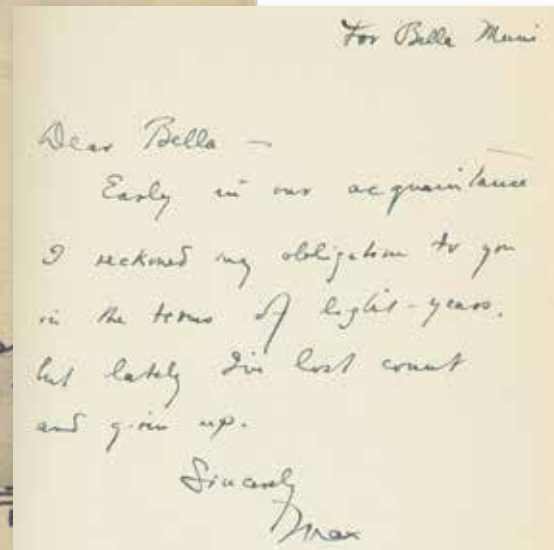 For Bella Muni
Dear Bella —
Early in our acquaintance
I reckoned my obligation to you
in the terms of light-years,
but lately I've lost count
and given up.
Sincerely
Max